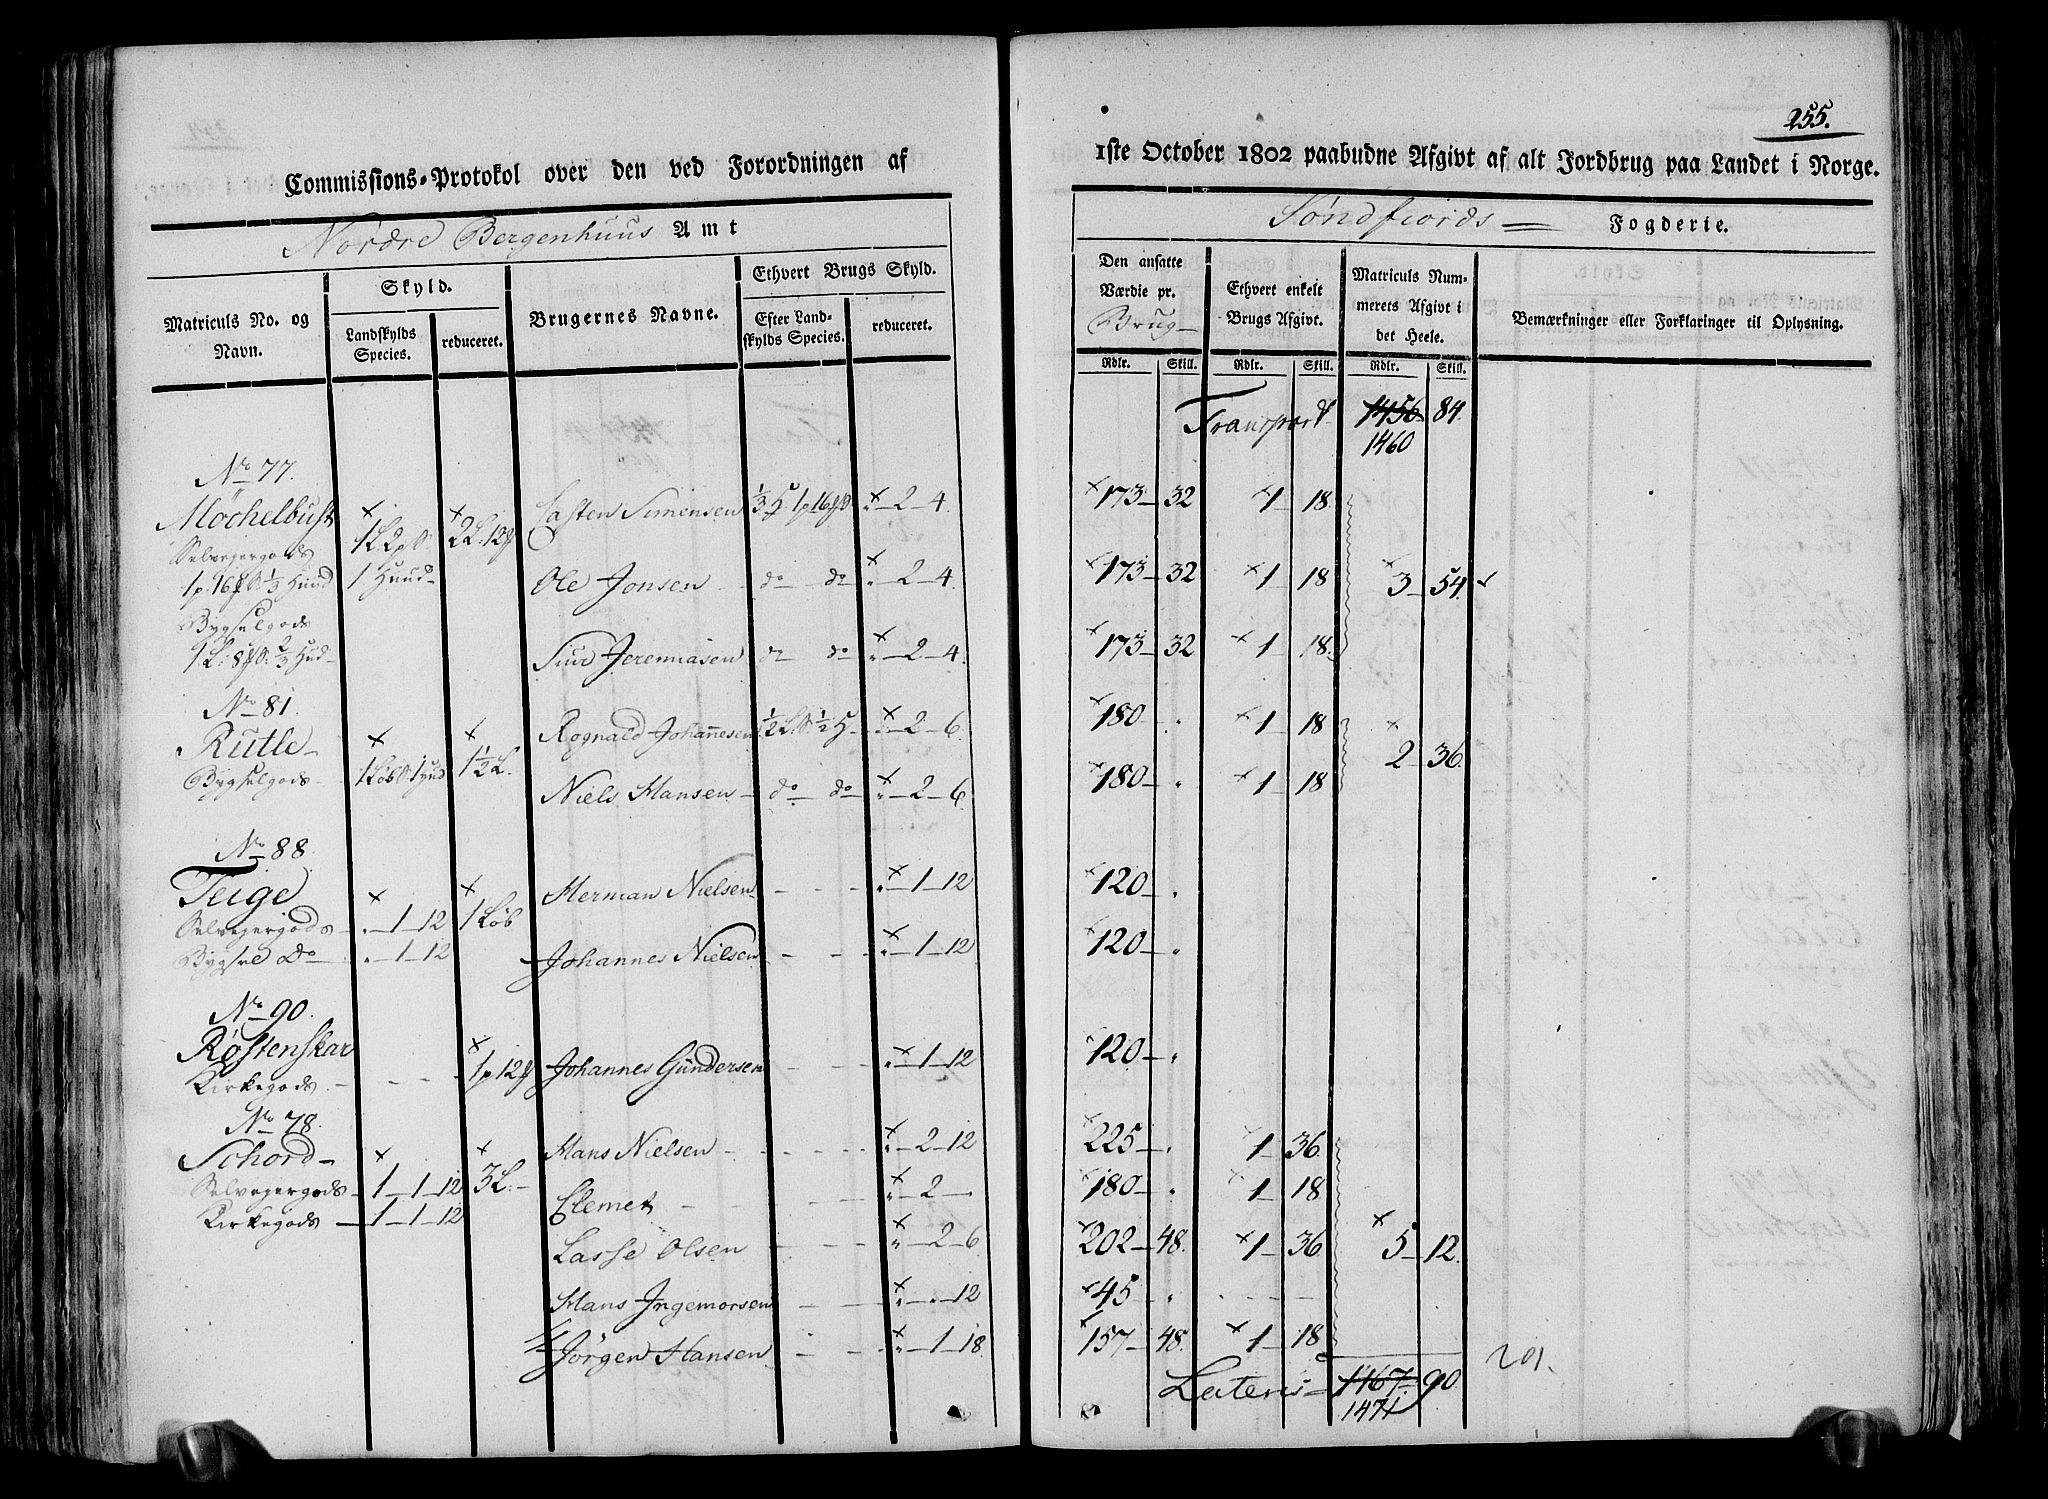 255.
Commissions-Protokol over den ved Forordningen af
1ste October 1802 paabudne Afgivt af alt Jordbrug paa Landet i Norge.
Nordre Bergenhuus Amt
Søndfiords Fogderie.
Matriculs No. og Navn.
Skyld.
Landskylds Species.
reduceret.
Brugernes Navne.
Ethvert Brugs Skyld.
Efter Landskylds Species.
reduceret.
Den ansatte Værdie pr. Brug
Ethvert enkelt Brugs Afgivt.
Matriculs Nummerets Afgivt i det Heele.
Bemærkninger eller Forklaringer til Oplysning.
Rdlr. Skill. Rdlr. Skill. Rdlr. Skill.
Transport 1456 84.
1460
No 77.
Möchelbust Casten Simensen 2 4. 173 32 1 18
Selvejergods 1 L. 2 p 2 L. 12
1 p. 16 1/3 Hund 1 Huud Ole Jonsen do do 2 4. 173 32 1 18 3 54.
Bygselgods
1 L. 8 2/3 Hud Siur Jeremiasen do do 2 4. 173 32 1 18.
No 81.
Rutle Rognald Johannesen 2 6 180 1 18
Bygselgods 1 Løb 1 Hud 1 1/2 L. 2 36.
Niels Hansen do do 2 6. 180 1 18
No 88.
Teige Herman Nielsen 1 12 120
Selvejergods 1 12 1 Løb
Bygsel do 1 12 Johannes Nielsen 1 12 120
No 90.
Røstenskar 1 p 12 Johannes Gundersen 1 12 120
Kirkegods
No 78.
Schord Hans Nielsen 2 12 225 1 36.
Selvejergods 1 1 12 3 L. Clemet 2 180 1 18
Kirkegods 1 1 12
Lasse Olsen 2 6. 202 48. 1 36 5 12.
Hans Ingemorsen 12 45
Jørgen Hansen 1 18. 157 48. 1 18
Lateris 1467. 90.
1471
201.